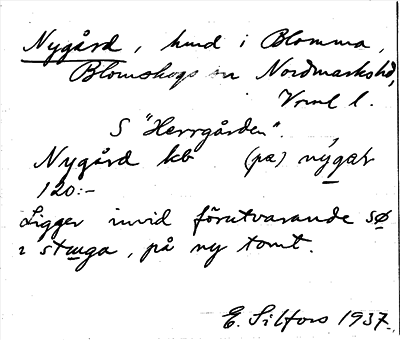 Nygård, hmd i Blomma,
Blomskogs sn Nordmarks hd,
Vrml l.
S "Herrgården".
Nygård kb (pæ) nýgæṛ
120:-
Ligger invid förutvarande sø
i stuga, på ny tomt.
E. Silfors 1937.